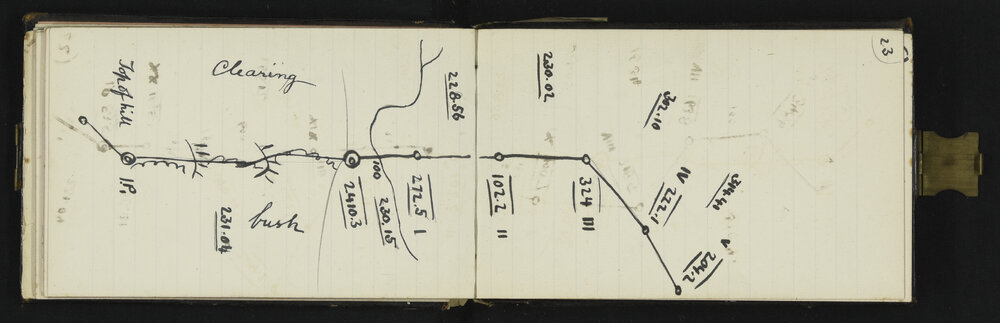 23
Clearing
Top of hill
I.P.
231.04
bush
2410.3
100
230.15
228.56
272.5 I
102.2 II
230.02
324 III
302.10
IV 222.1
314.41
V 204.2